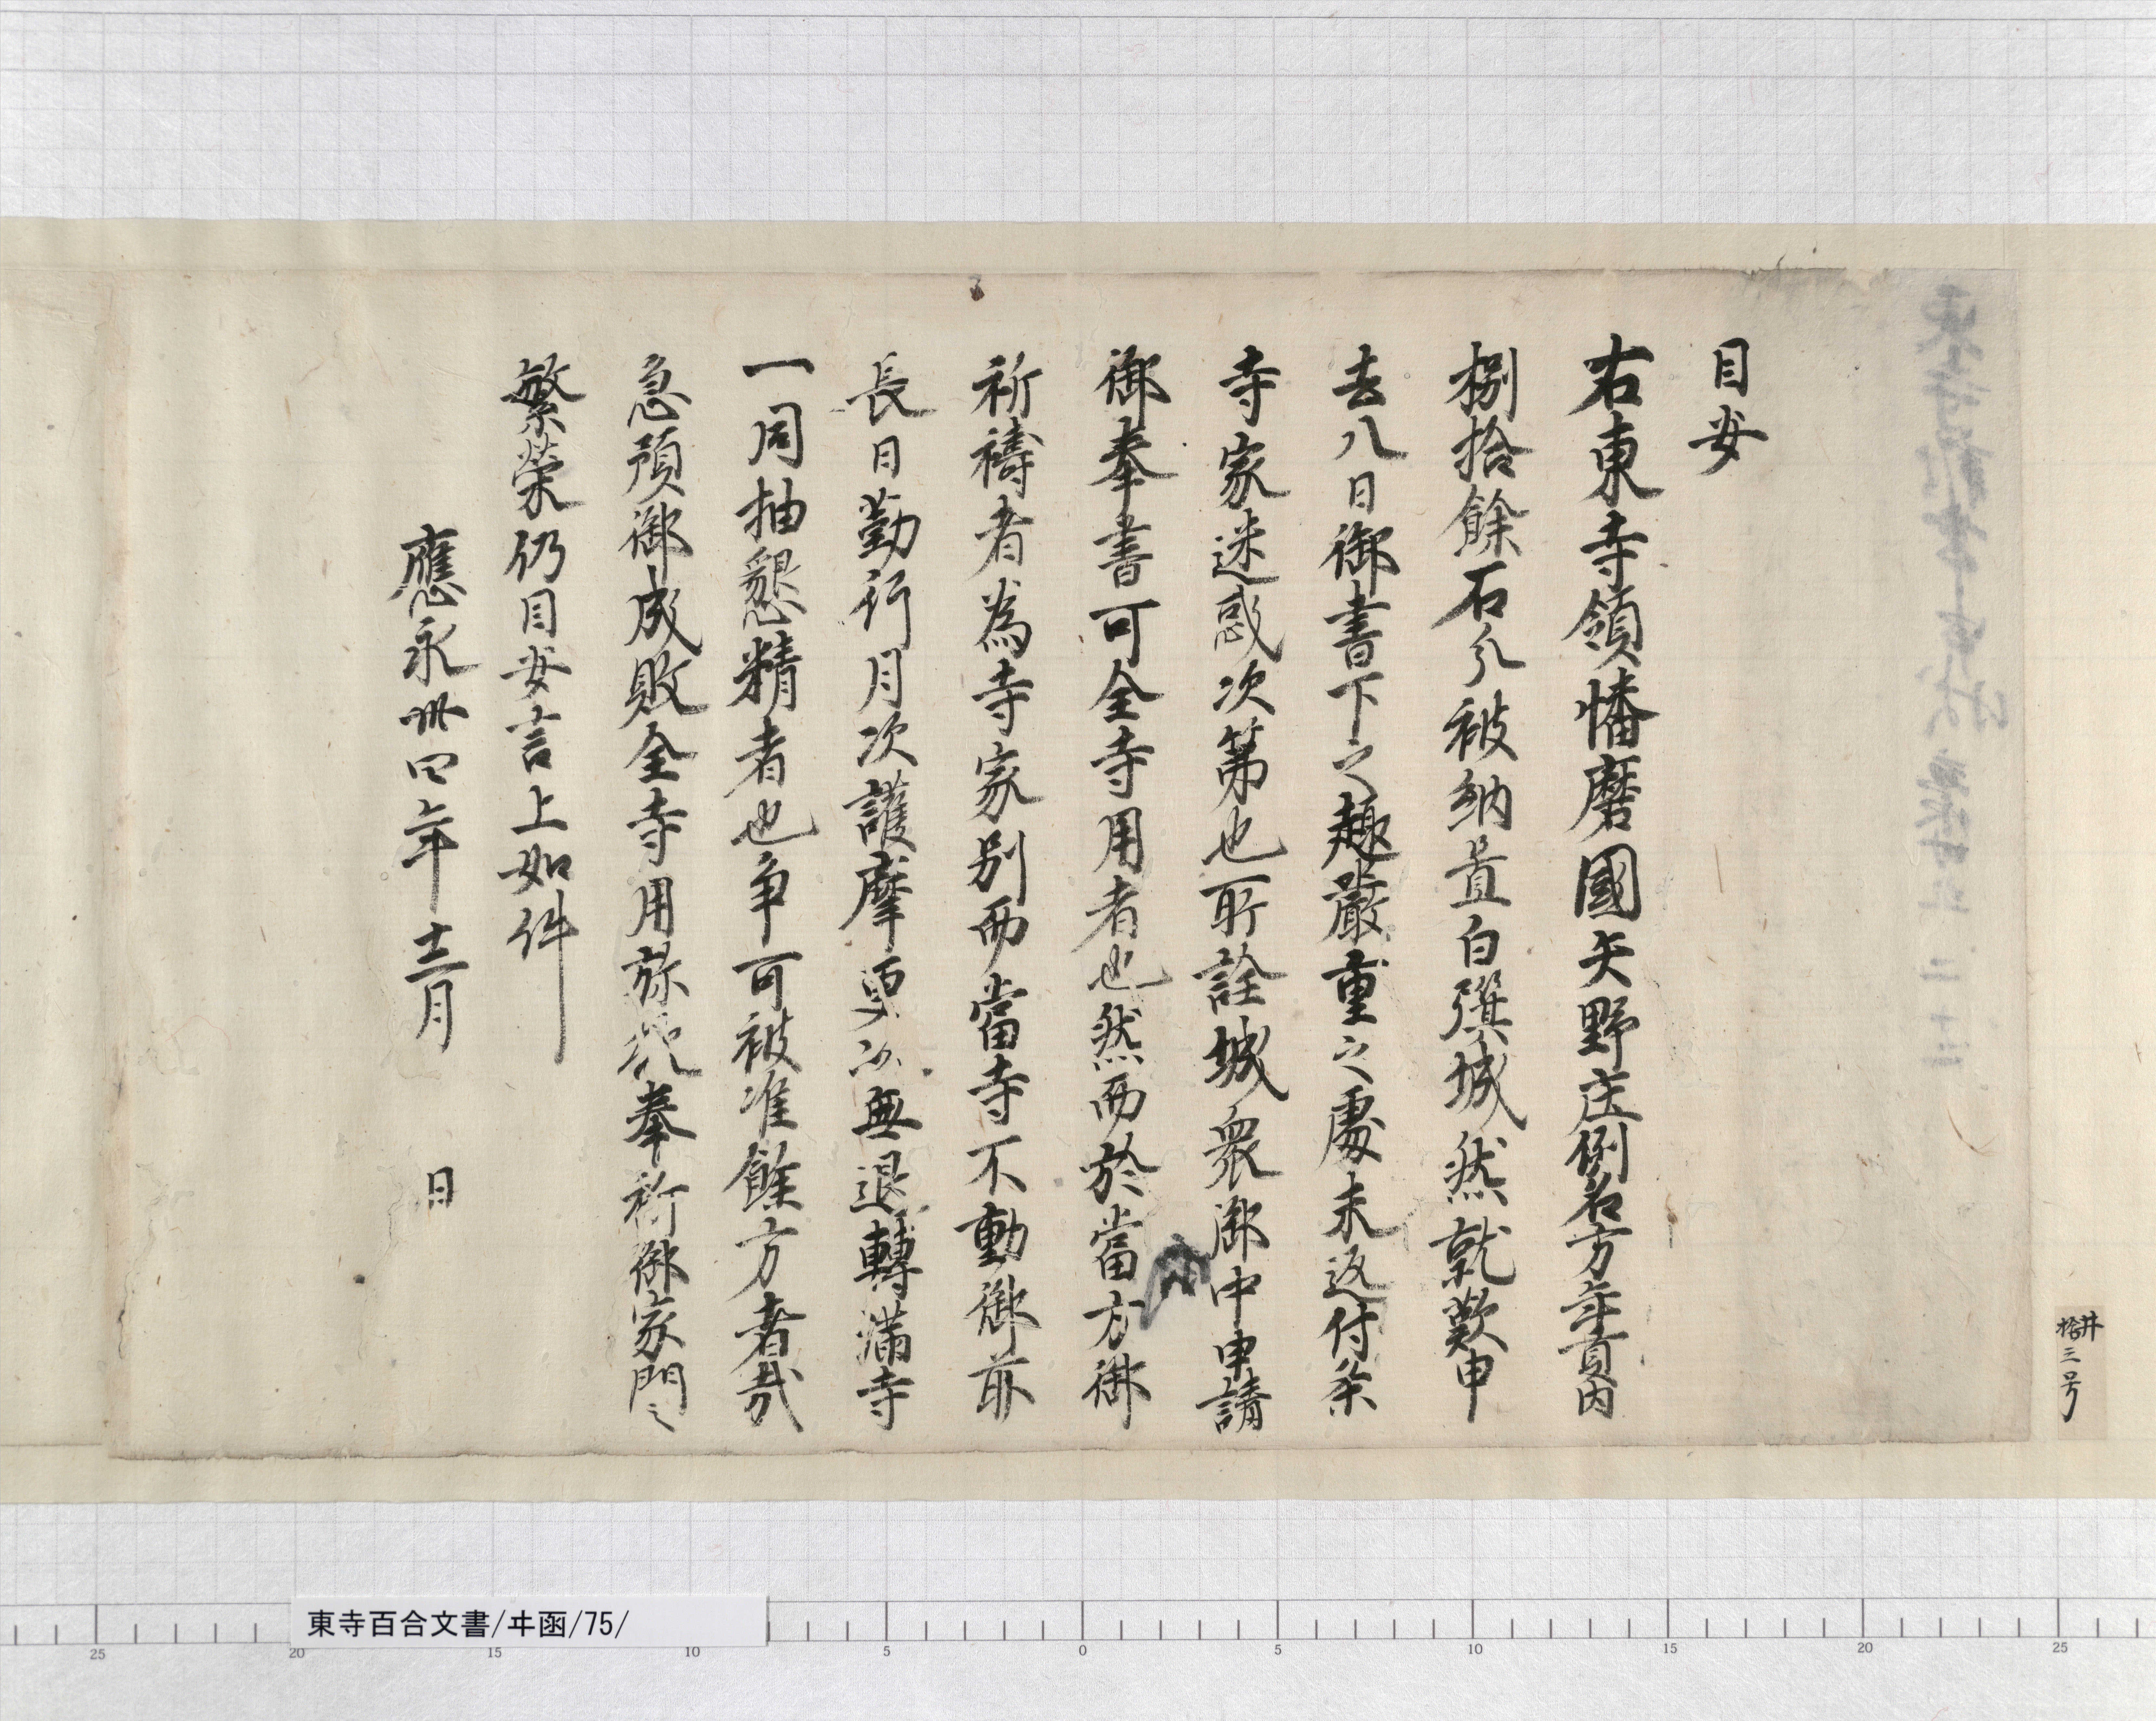 目安
右東寺領幡磨國矢野庄例名方年貢内
捌拾餘石分被納置白旗城然就歎申
去八日御書下之趣嚴重之處未返付条
寺家迷惑次第也所詮城衆御中申請
御奉書可全寺用者也然而於當方御
祈禱者為寺家別而當寺不動御前
長日勤行月次護摩更以無退轉満寺
一同抽懇精者也争可被准餘方者哉
急預御成敗全寺用弥奉祈御家門之
繁榮仍目安言上如件
應永卅四年十二月 日
井
拾三号
東寺百合文書/ヰ函/75/
25 20 15 10 5 0 5 10 15 20 25